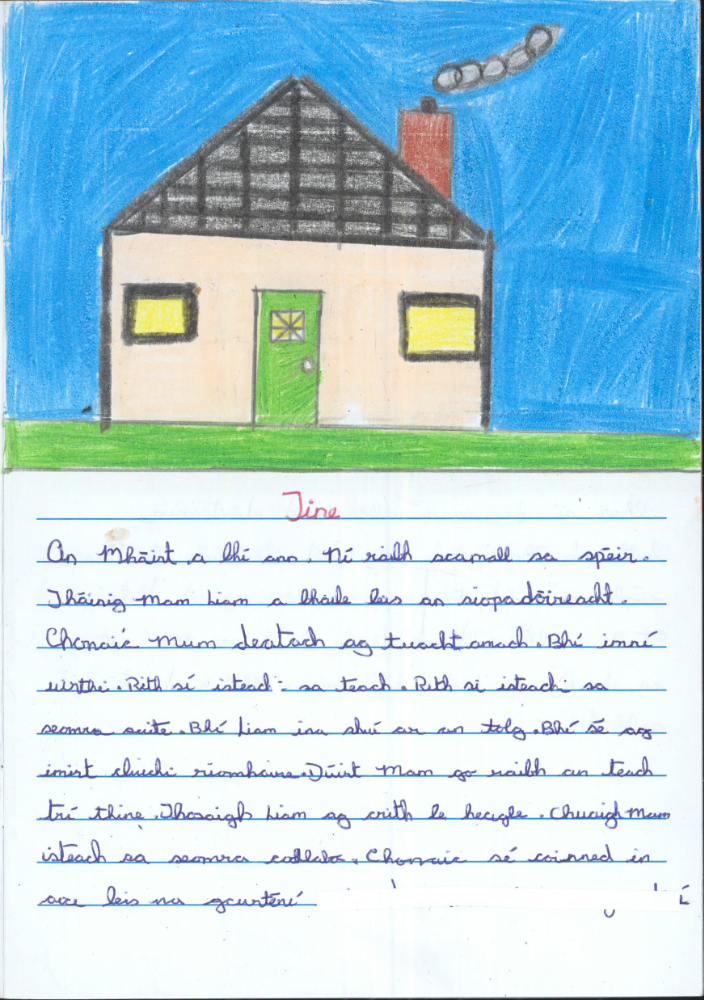 Tine
An Mháirt a bhí ann. Ní raibh scamall sa spéir.
Tháinig Mam Liam a bhaile leis an siopadóireacht.
Chonaic Mum deatach ag tuacht amach. Bhí imní
uirthi. Rith sí isteach sa teach. Rith si isteach sa
seomra suite. Bhí Liam ina shuí ar an tolg. Bhí sé ag
imirt cluichi ríomhaire. Dúirt Mam go raibh an teach
trí thine. Thosaigh Liam ag crith le heagle. Chuaigh Mam
isteach sa seomra codlata. Chonaic sé coinneal in
aice leis na gcuirtení